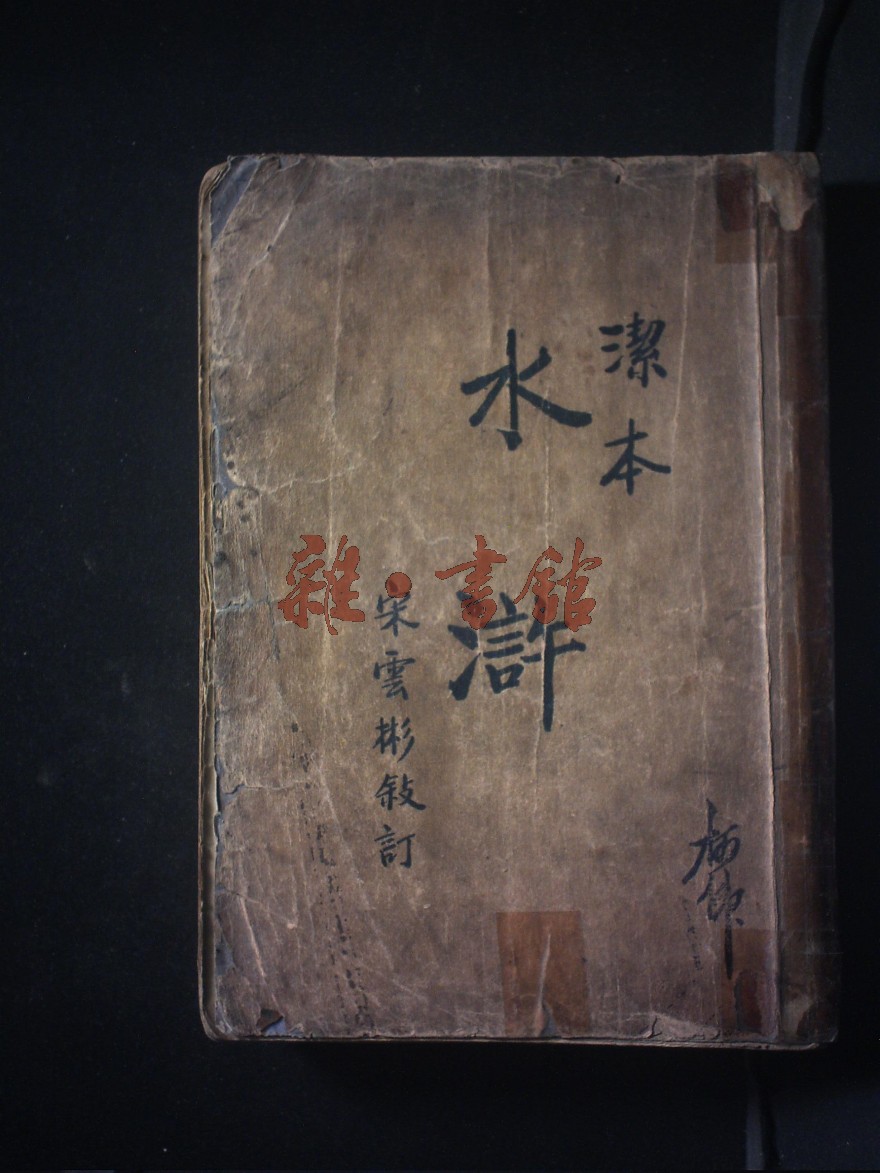 潔本
水滸
宋雲彬敍訂
雜·書館